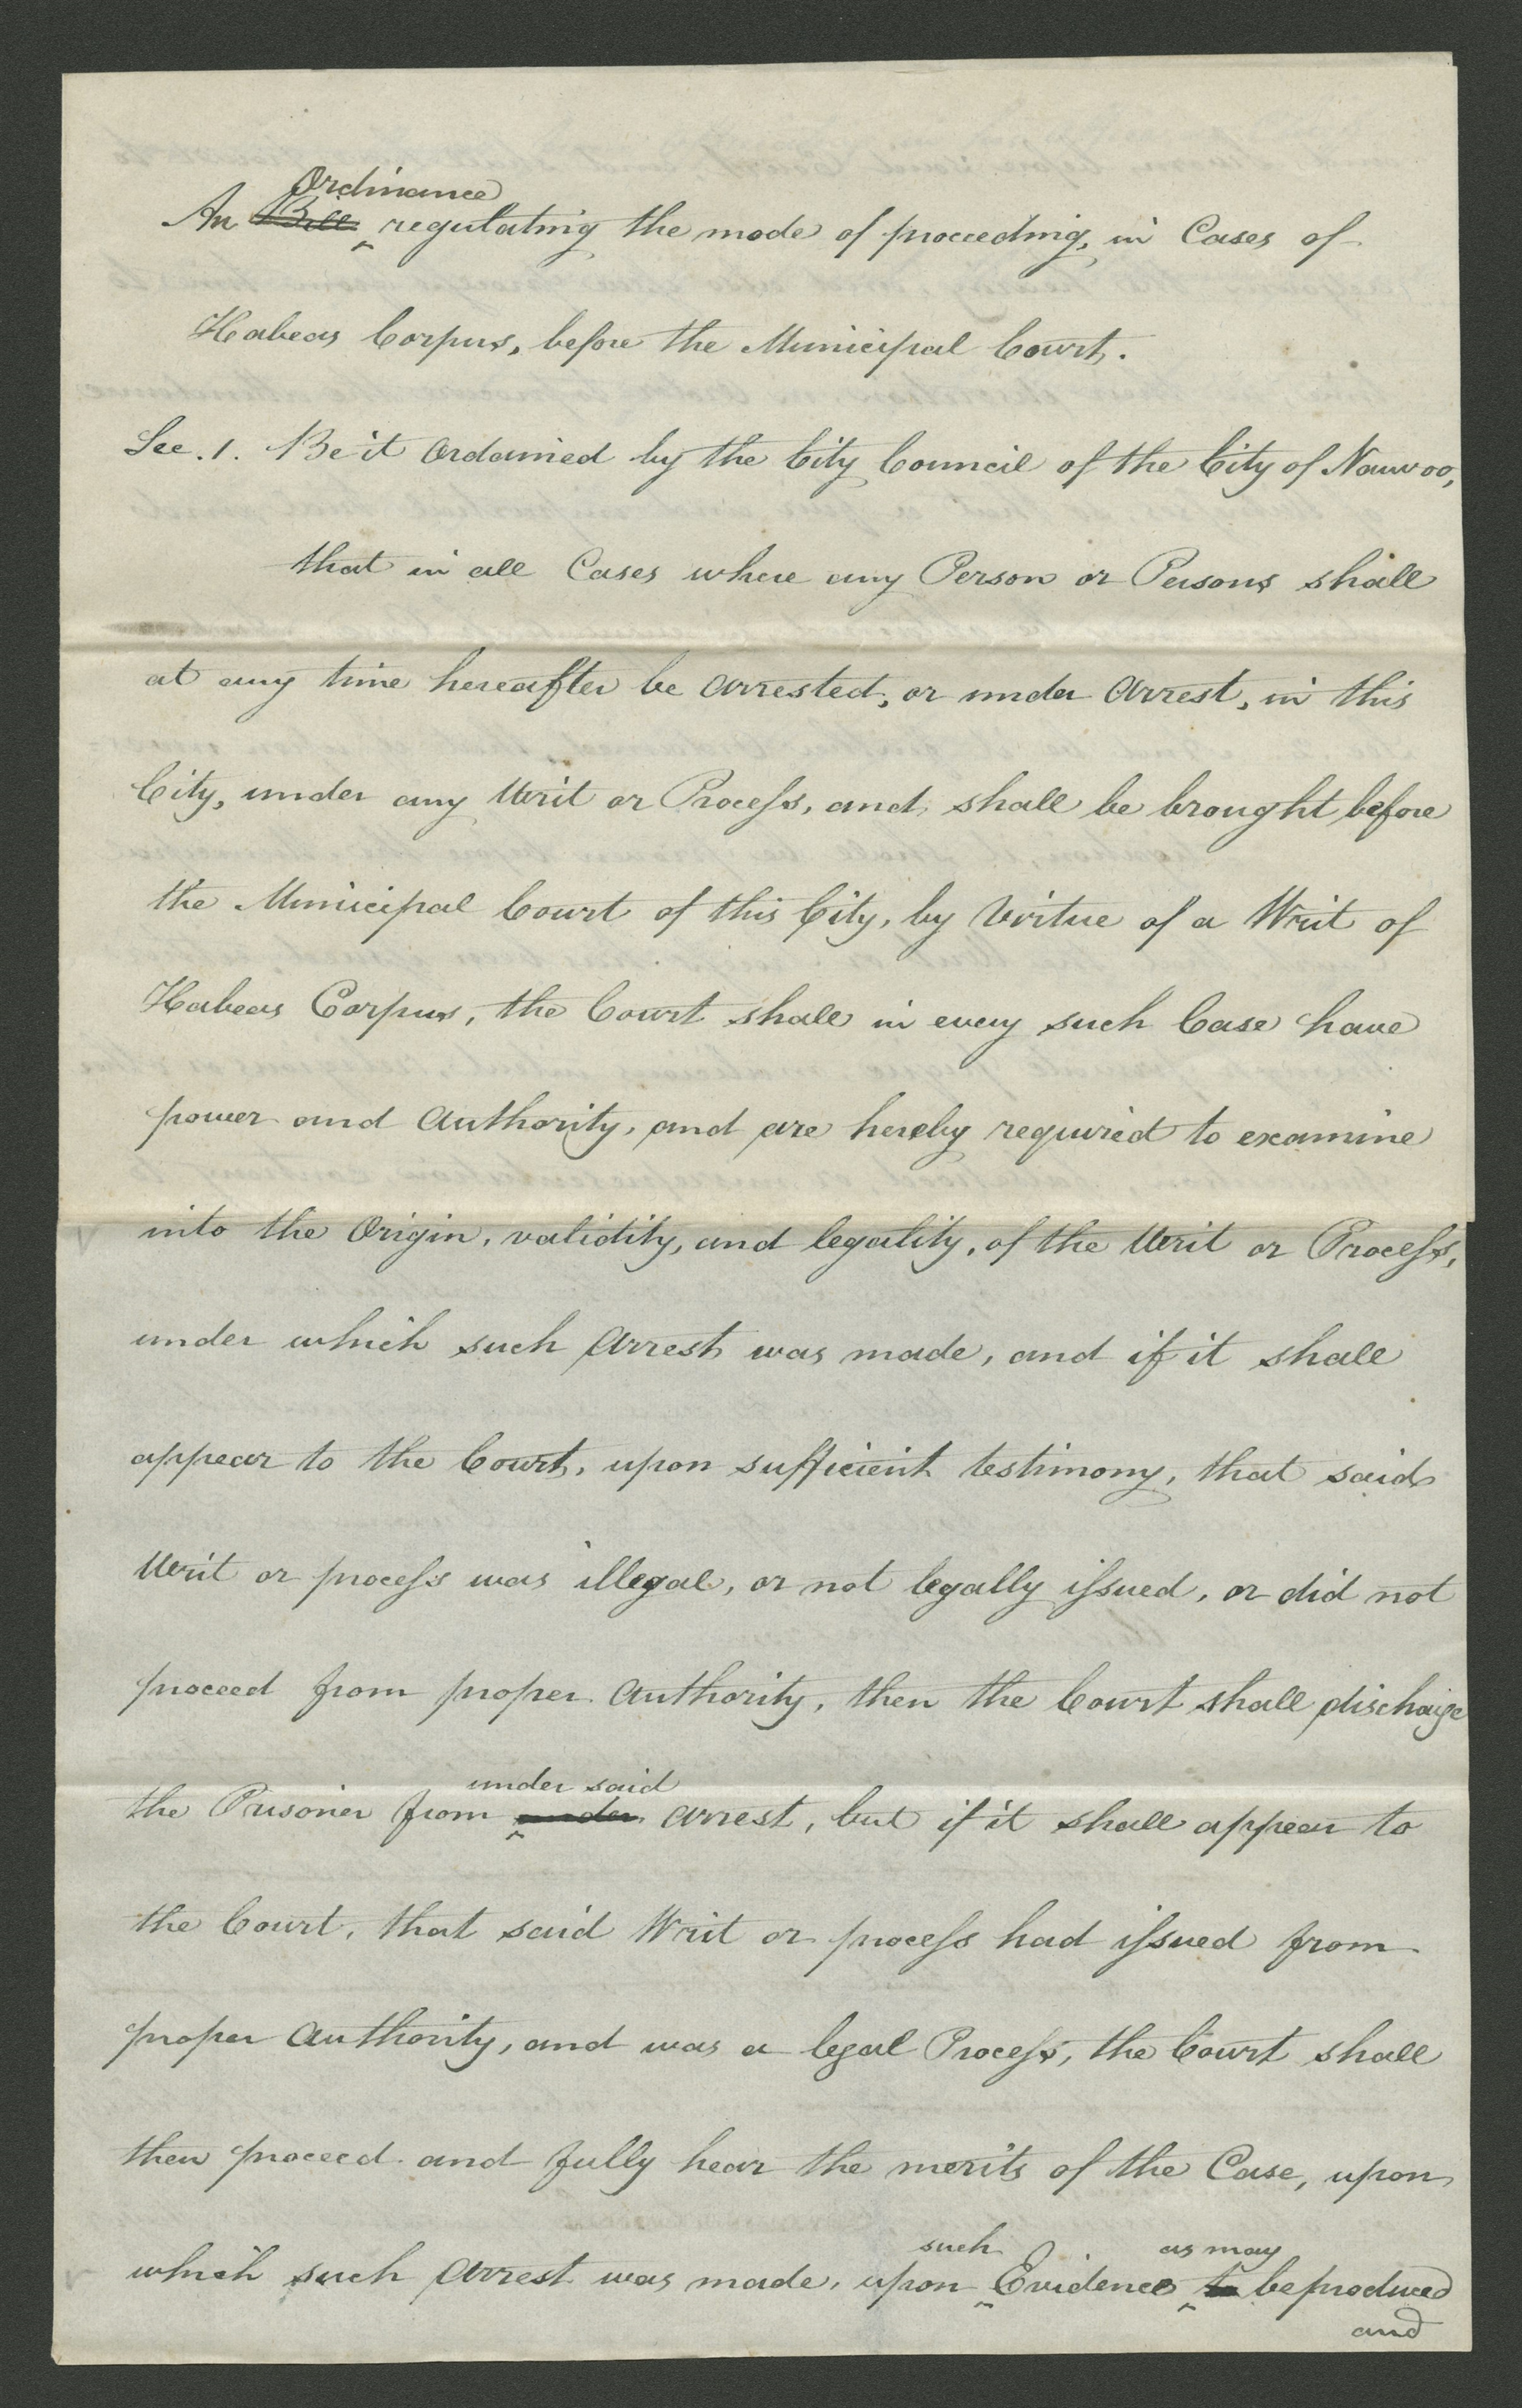 Ordinance
An Bill regulating the mode of proceeding, in Cases of
Habeas Corpus, before the Municipal Court.
Sec. 1. Be it Ordained by the City Council of the City of Nauvoo,
that in all Cases where any Person or Persons shall
at any time hereafter be Arrested, or under Arrest, in this
City, under any Writ or Process, and shall be brought before
the Municipal Court of this City, by Virtue of a Writ of
Habeas Corpus, the Court shall in every such Case have
power and Authority, and are hereby required to examine
into the Origin, validity, and legality, of the Writ or Process,
under which such Arrest was made, and if it shall
appear to the Court, upon sufficient testimony, that said
Writ or process was illegal, or not legally issued, or did not
proceed from proper Authority, then the Court shall discharge
under said
the Prisoner from under arrest, but if it shall appear to
the Court, that said Writ or process had issued from
proper Authority, and was a legal Process, the Court shall
then proceed and fully hear the merits of the Case, upon
such as may
which such Arrest was made, upon Evidence to be produced
and